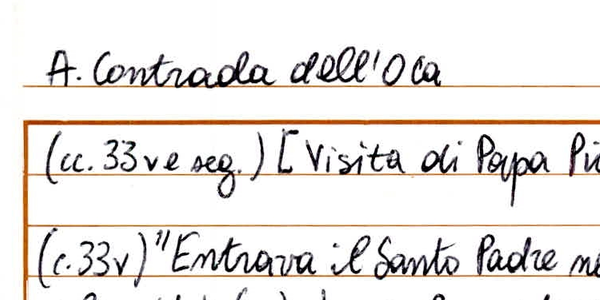 A. Contrada dell'Oca
(cc. 33v e seg.) [Visita di Papa
(c. 33v) "Entrava il Santo Padre